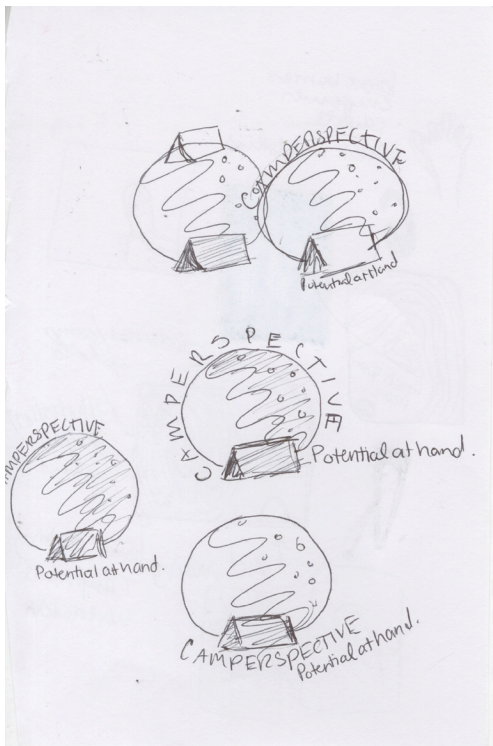 CAMPERSPECTIVE
Potential at Hand
CAMPERSPECTIVE
Potential at hand.
AMPERSPECTIVE
Potential at hand.
CAMPERSPECTIVE
Potential at hand.